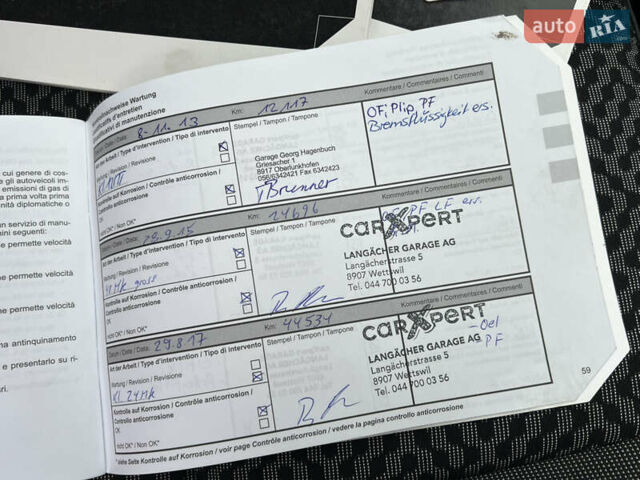 auto RIA .com
Wartungsnachweise Wartung
d'entretien
di manutenzione
Datum / Date / Data: 8-11.13 Km: 12117 Kommentare / Commentaires / Commenti
Art der Arbeit / Type d'intervention / Tipo di intervento Stempel / Tampon / Timbro
Wartung / Revisione / Revisione
OFi Plip, PF
Bremsflüssigkeit ers.
Garage Georg Hagenbuch
Griesacher 1
8917 Oberlunkhofen
056/6342421 Fax 6342423
Brunner
Kontrolle auf Korrosion / Contrôle anticorrosion /
Controllo anticorrosione
OK
nicht OK* / Non OK*
Datum / Date / Data: 29.9.15 Km: 24696 Kommentare / Commentaires / Commenti
Art der Arbeit / Type d'intervention / Tipo di intervento Stempel / Tampon / Timbro
Wartung / Revision / Revisione
PF LF ers.
carXpert
LANGÄCHER GARAGE AG
Langächerstrasse 5
8907 Wettswil
Tel. 044 700 03 56
Kontrolle auf Korrosion / Contrôle anticorrosion /
Controllo anticorrosione
OK
nicht OK* / Non OK*
Datum / Date / Data: 29.8.17 Km: 44534 Kommentare / Commentaires / Commenti
Art der Arbeit / Type d'intervention / Tipo di intervento Stempel / Tampon / Timbro
Wartung / Revision / Revisione
carXpert
LANGÄCHER GARAGE AG
Langächerstrasse 5
8907 Wettswil
Tel. 044 700 03 56
- Oel
PF
Kontrolle auf Korrosion / Contrôle anticorrosion /
Controllo anticorrosione
OK
nicht OK* / Non OK*
* siehe Seite Kontrolle auf Korrosion / voir page Contrôle anticorrosion / vedere la pagina controllo anticorrosione
59
cui genere di cos-
e gli autoveicoli im-
emissioni di gas di
a prima volta prima
nità diplomatiche o
un servizio di manu-
nini seguenti:
e permette velocità
e permette velocità
e permette velocità
antinquinamento
e presentarlo su ri-